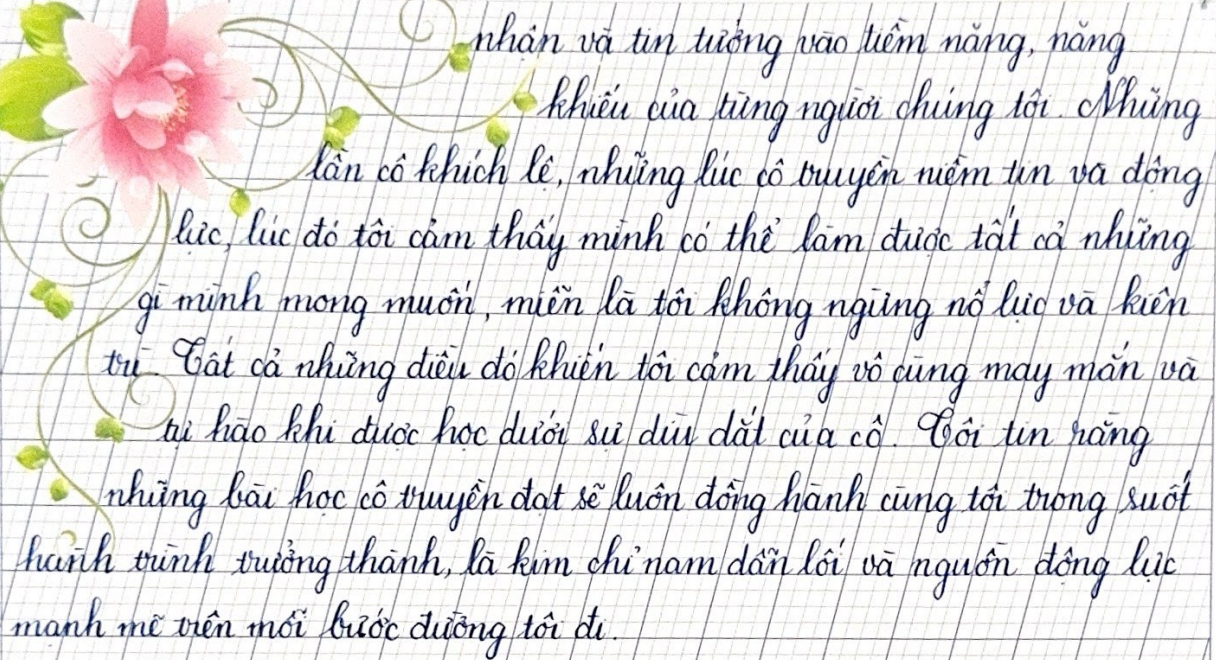 nhận và tin tưởng vào tiềm năng, năng
khiếu của từng người chúng tôi. Những
lần cô khích lệ, những lúc cô truyền niềm tin và động
lực, lúc đó tôi cảm thấy mình có thể làm được tất cả những
gì mình mong muốn, miễn là tôi không ngừng nổ lực và kiên
trì. Tất cả những điều đó khiến tôi cảm thấy vô cùng may mắn và
tự hào khi được học dưới sự dìu dắt của cô. Tôi tin rằng
những bài học cô truyền đạt sẽ luôn đồng hành cùng tôi trong suốt
hành trình trưởng thành, là kim chỉ nam dẫn lối và nguồn động lực
mạnh mẽ trên mỗi bước đường tôi đi.